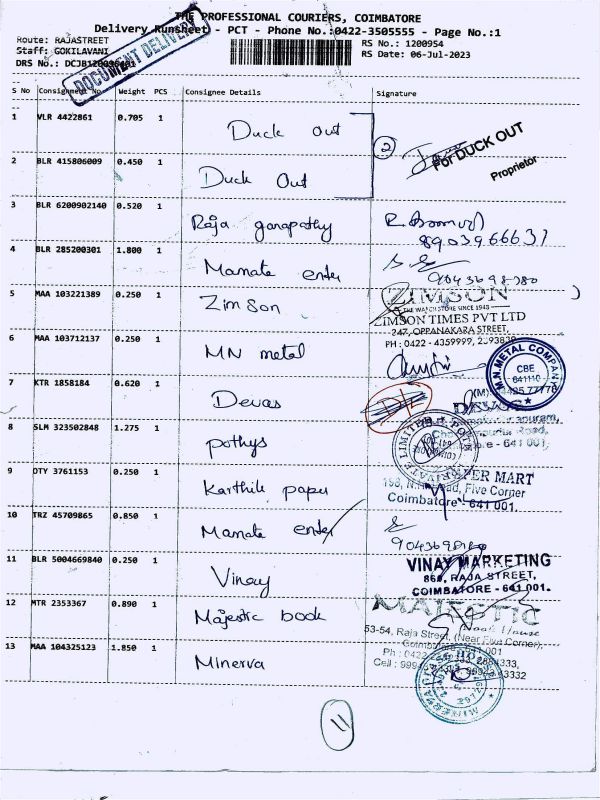 THE PROFESSIONAL COURIERS, COIMBATORE
Delivery Runsheet - PCT - Phone No.:0422-3505555 - Page No.:1
Route: RAJASTREET
Staff: GOKILAVANI
RS No.: 1200954
RS Date: 06-Jul-2023
DOCUMENT DELIVERY
S No Consignment No Weight PCS Consignee Details Signature
1 VLR 4422861 0.705 1 Duck Out
2 For DUCK OUT
Proprietor
2 BLR 415806009 0.450 1 Duck Out
3 BLR 6200902140 0.520 1 Raja ganapathy
8903966637
4 BLR 285200301 1.800 1 Mamate enter
9043698980
5 MAA 103221389 0.250 1 Zimson
ZIMSON
THE WATCH STORE SINCE 1948
ZIMSON TIMES PVT LTD
247, OPPANAKARA STREET,
PH : 0422 - 4359999,
6 MAA 103712137 0.250 1 MN metal
M.N. METAL COMPANY
CBE
641110
7 KTR 1858184 0.620 1 Devas
8 SLM 323502848 1.275 1 pothys
PRIVATE LIMITED
9 DTY 3761153 0.250 1 Karthik paper
MART
Five Corner
Coimbatore - 641 001.
10 TRZ 45709865 0.850 1 Mamate enter
11 BLR 5004669840 0.250 1 Vinay
VINAY MARKETING
RAJA STREET,
COIMBATORE - 641 001.
12 MTR 2353367 0.890 1 Majestic book
MAJESTIC
Book House
53-54, Raja Street, (Near Five Corner),
Coimbatore - 641 001
13 MAA 104325123 1.850 1 Minerva
11